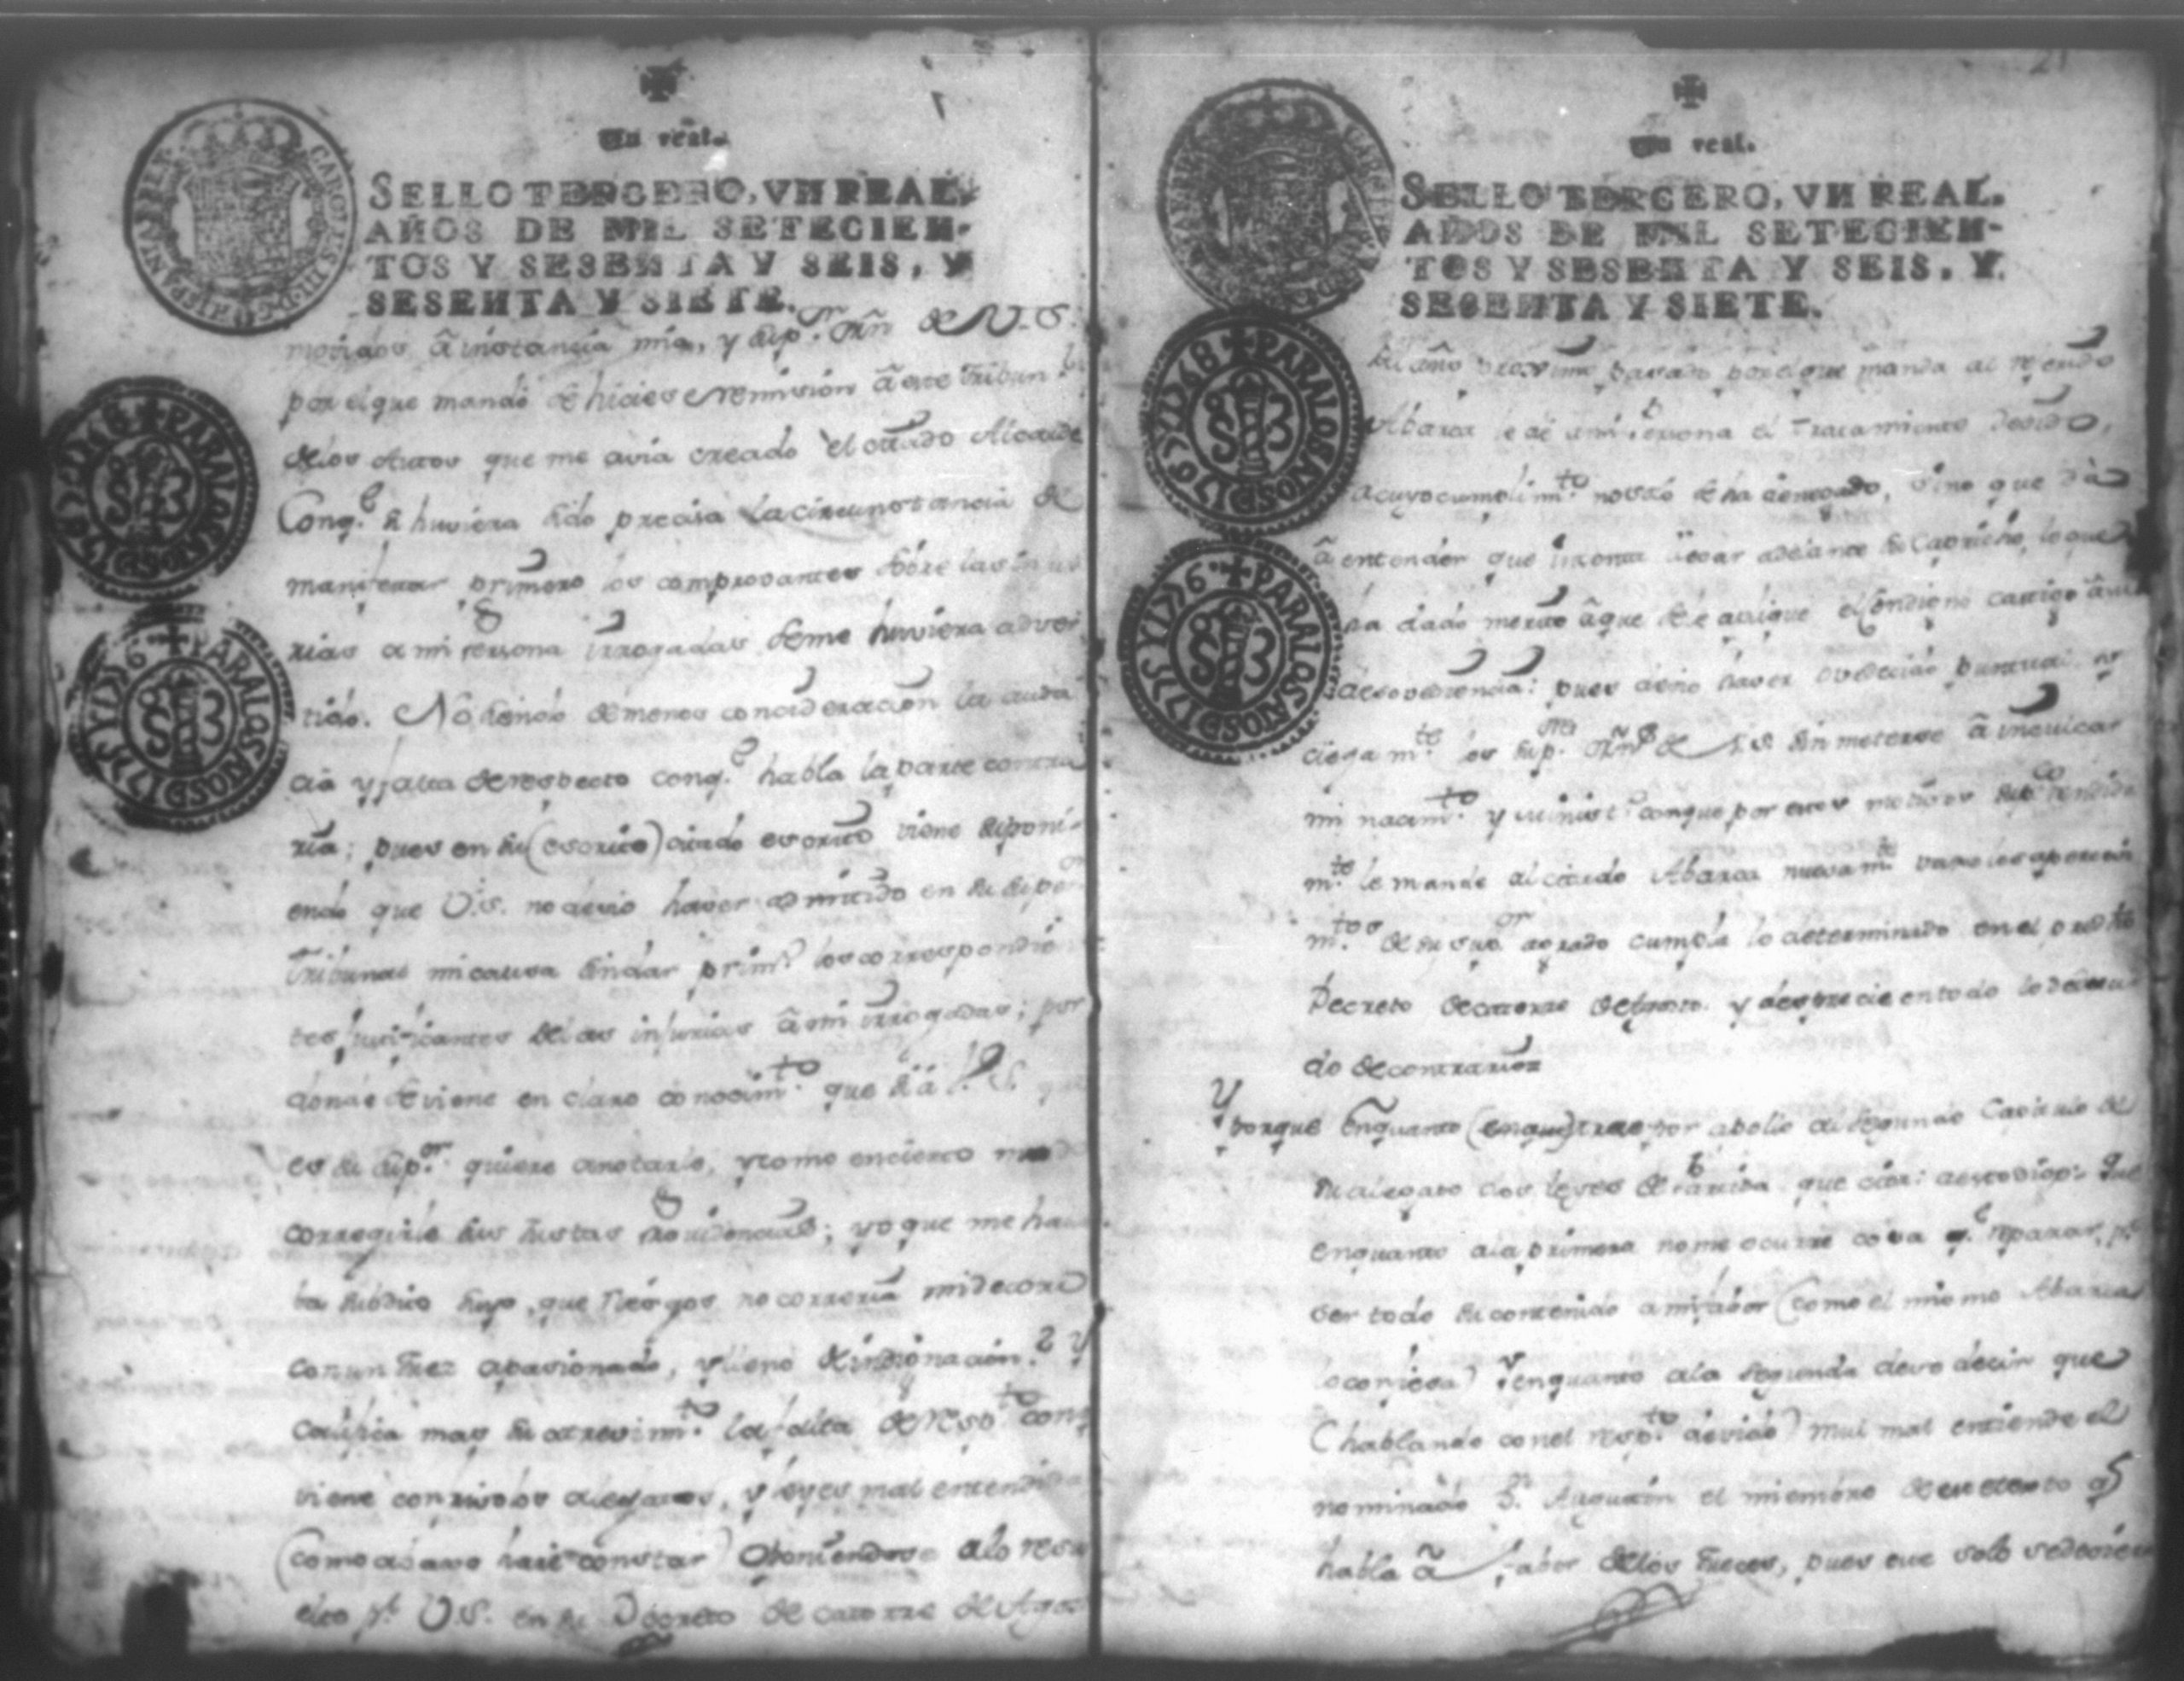 Un real.
SELLO TERCERO, VN REAL,
AÑOS DE MIL SETECIEN-
TOS Y SESENTA Y SEIS, Y
SESENTA Y SIETE.
CAROLUS III D G HISPANIAR REX
PARA LOS AÑOS D 1767 Y D 68
PARA LOS AÑOS D 1775 Y D 76
â instancia mia, y de V.S.
por el que mandó se hiciese remision â este Tribun.l
de los Autos que me avia creado el citado Alcalde
Conq.e huviera sido precisa la circunstancia de
manifestar primero los comprovantes sobre las inju
rias a mi Persona irrogadas se me huviera adver
tido. No siendo de menos concideracion la auda
cia y falta de respecto conq.e habla la parte contra
ria; pues en su (escrito) citado escrito viene suponi-
endo que V.S. no devio haver admitido en su Sup.or
Tribunal mi causa sin dar prim.o los correspondien
tes justificantes de las injurias â mi irrogadas; por
donde se viene en claro conosim.to que si á V.S. que
es su Sup.or quiere anotarle, y como en cierto modo
corregirle sus justas Providencias; yo que me ha
ba subdito suyo, que riesgos no correria mi decoro
con un Juez apasionado, y lleno de indignacion? Y
califica mas su atrevim.to la falta de resp.to con q
viene con risibles alegatos, y leyes mal entendidas
(como abaxo haré constar) Oponiendose a lo resu
elto p.r V.S. en su Decreto de catorze de Agos
21
Un real.
SELLO TERCERO, VN REAL.
AÑOS DE MIL SETECIEN-
TOS Y SESENTA Y SEIS, Y
SESENTA Y SIETE.
PARA LOS AÑOS D 1767 Y D 68
PARA LOS AÑOS D 1775 Y D 76
del año proximo pasado por el que manda al referido
Abarca le dé a mi Persona el Tratamiento devido,
a cuyo cumplim.to no solo se ha denegado, sino que da
â entender que intenta llevar adelante su Capricho, lo que
ha dado merito â que se le aplique el condigno castigo â su
desovediencia: pues devio haver ovedecido puntual, y
ciegam.te los de V.S. sin meterse â inculcar
mi nacim.to y conque por estos motivos
m.te le mande al citado Abarca nuevam.te vaxo los apercevi
m.tos de su sup.or agrado cumpla lo determinado en el pred.to
Decreto de catorze de Agosto. y desprecie en todo lo deduci
do de contrario
Y porque enquanto (enqu) trae por apollo al segundo Capitulo de
su alegato dos leyes de Partida que cita: a esto digo: Que
enquanto a la primera no me ocurre cosa q.e reparar, p.r
ser todo su contenido a mi fabor (como el mismo Abarca
lo confiesa) Y enquanto a la segunda devo decir que
(hablando con el resp.to devido) mui mal entiende el
nominado D.n Augustin el miembro de su etexto q
habla â fabor de los Jueces, pues ese solo se